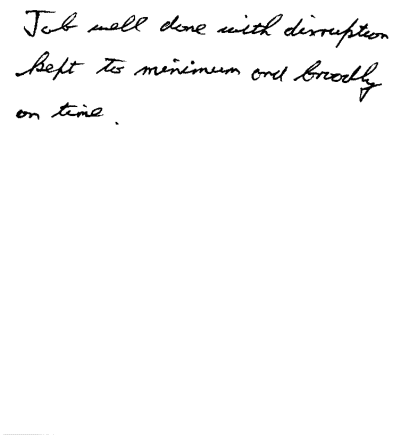 Job well done with disruption
kept to minimum and broadly
on time.